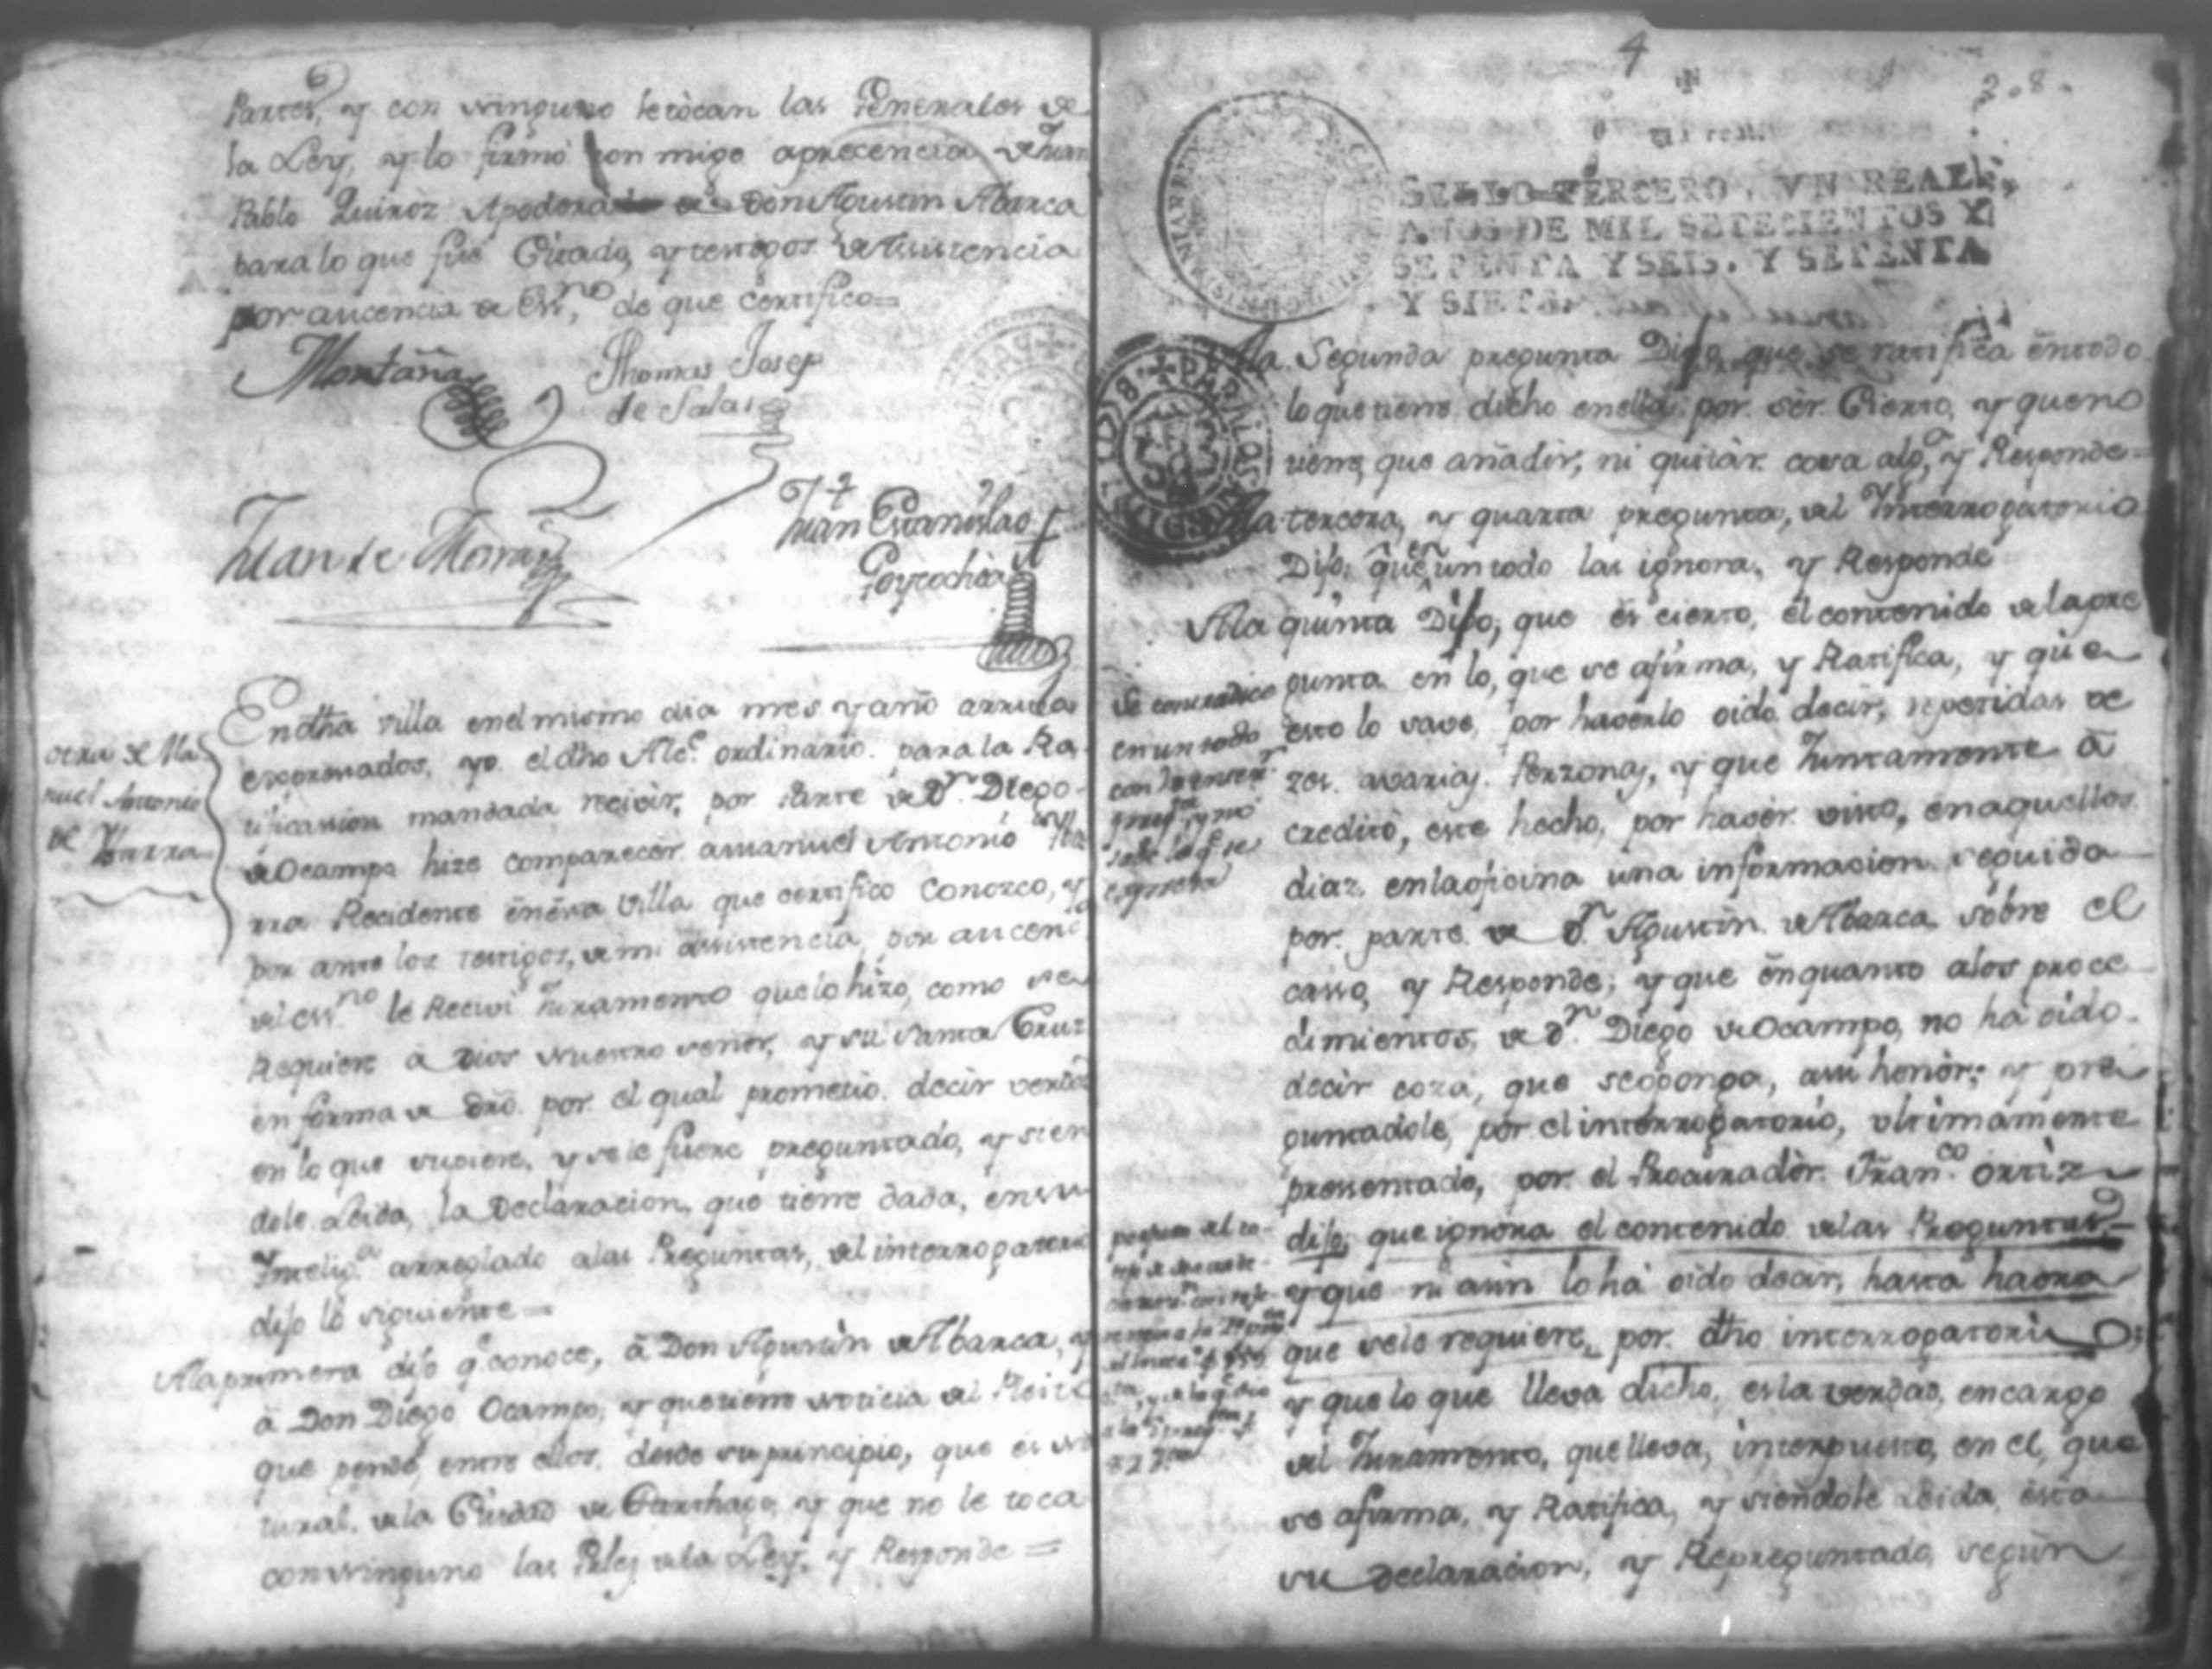 Partes, y con ninguno le tòcan las Generales de
la Ley, y lo firmó con migo aprecencia de Juan
Pablo Quiroz Apoderado de don Agustin Abarca
para lo que fué Citado, y testigos de Asistencia
por aucencia de Ess.no de que certifico=
Montaña
Thomas Josep
de Salas
Juan de Mora
Juan Estanislao
Goycochea
otra de Ma
nuel Antonio
de Ybarra
En dha villa enel mismo dia mes y año arriba
expresados, yo el dho Alc.e ordinario para la Ra
tificassion mandada recivir, por Parte de D.n Diego
de Ocampo hize comparecer amanuel Antonio Yba
rra Recidente ênêsta Villa que certifico Conozco, y
por ante los testigos, de mi assistencia por aucenc.a
del ess.no le Recivi Juramento que lo hizo, como se
Requiere â Dios nuestro señor, y su santa Cruz
en forma de dro. por el qual prometió decir verdad
en lo que supiere, y se le fuere preguntado, y sien
dole Leida, la Declaracion, que tiene dada, en su
Intelig.a arreglado alas Preguntas, del interrogatorio
dijo lo siguiente=
Ala primera dijo q.e conoce, â Don Agustin de Abarca, y
â Don Diego Ocampo, y que tiene noticia del Pleito
que pende entre ellos, desde su principio, que es na
tural, de la Ciudad de Carthago, y que no le toca
con ninguno las Grles de la Ley, y Responde=
4
2.8.
Vn real
SELLO TERCERO, VN REAL,
AÑOS DE MIL SETECIENTOS Y
SETENTA Y SEIS, Y SETENTA
Y SIETE.
Ala Segunda pregunta Dijo que se ratifica êntodo
lo que tiene dicho enella por sèr Cierto, y queno
tiene, que añadir, ni quitàr cosa alg.a, y Responde=
Ala tercera, y quarta pregunta, del Interrogatorio
Dijo, que en un todo las ignora, y Responde
Ala quinta Dijo, que és cierto, el contenido de la pre
gunta en lo, que se afirma, y Ratifica, y que
esto lo save, por haverlo oido decir, repetidas ve
zes. avarias Perzonas, y que Juntamente â
creditò, este hecho, por haver visto, en aquellos
diaz enla oficina una informacion seguida
por parte de d.n Agustin de Abarca sobre el
casso, y Responde; y que ênquanto alos proce
dimientos, de d.n Diego de Ocampo, no ha oido
decir coza, que seoponga, asu honòr; y pre
guntadole, por el interrogatorio, ultimamente
pressentado, por el Procuradòr Fran.co Ortiz
dijo, que ignora el contenido de las Preguntas=
y que ni aùn lo há oido decir, hasta haora
que sele requiere, por dho interrogatorio;
y que lo que lleva dicho, es la verdad, en cargo
del Juramento, que lleva, interpuesto, en el, que
se afirma, y Ratifica, y siendole Leida esta
su declaracion, y Repreguntado, segùn
Se contradice
en un todo